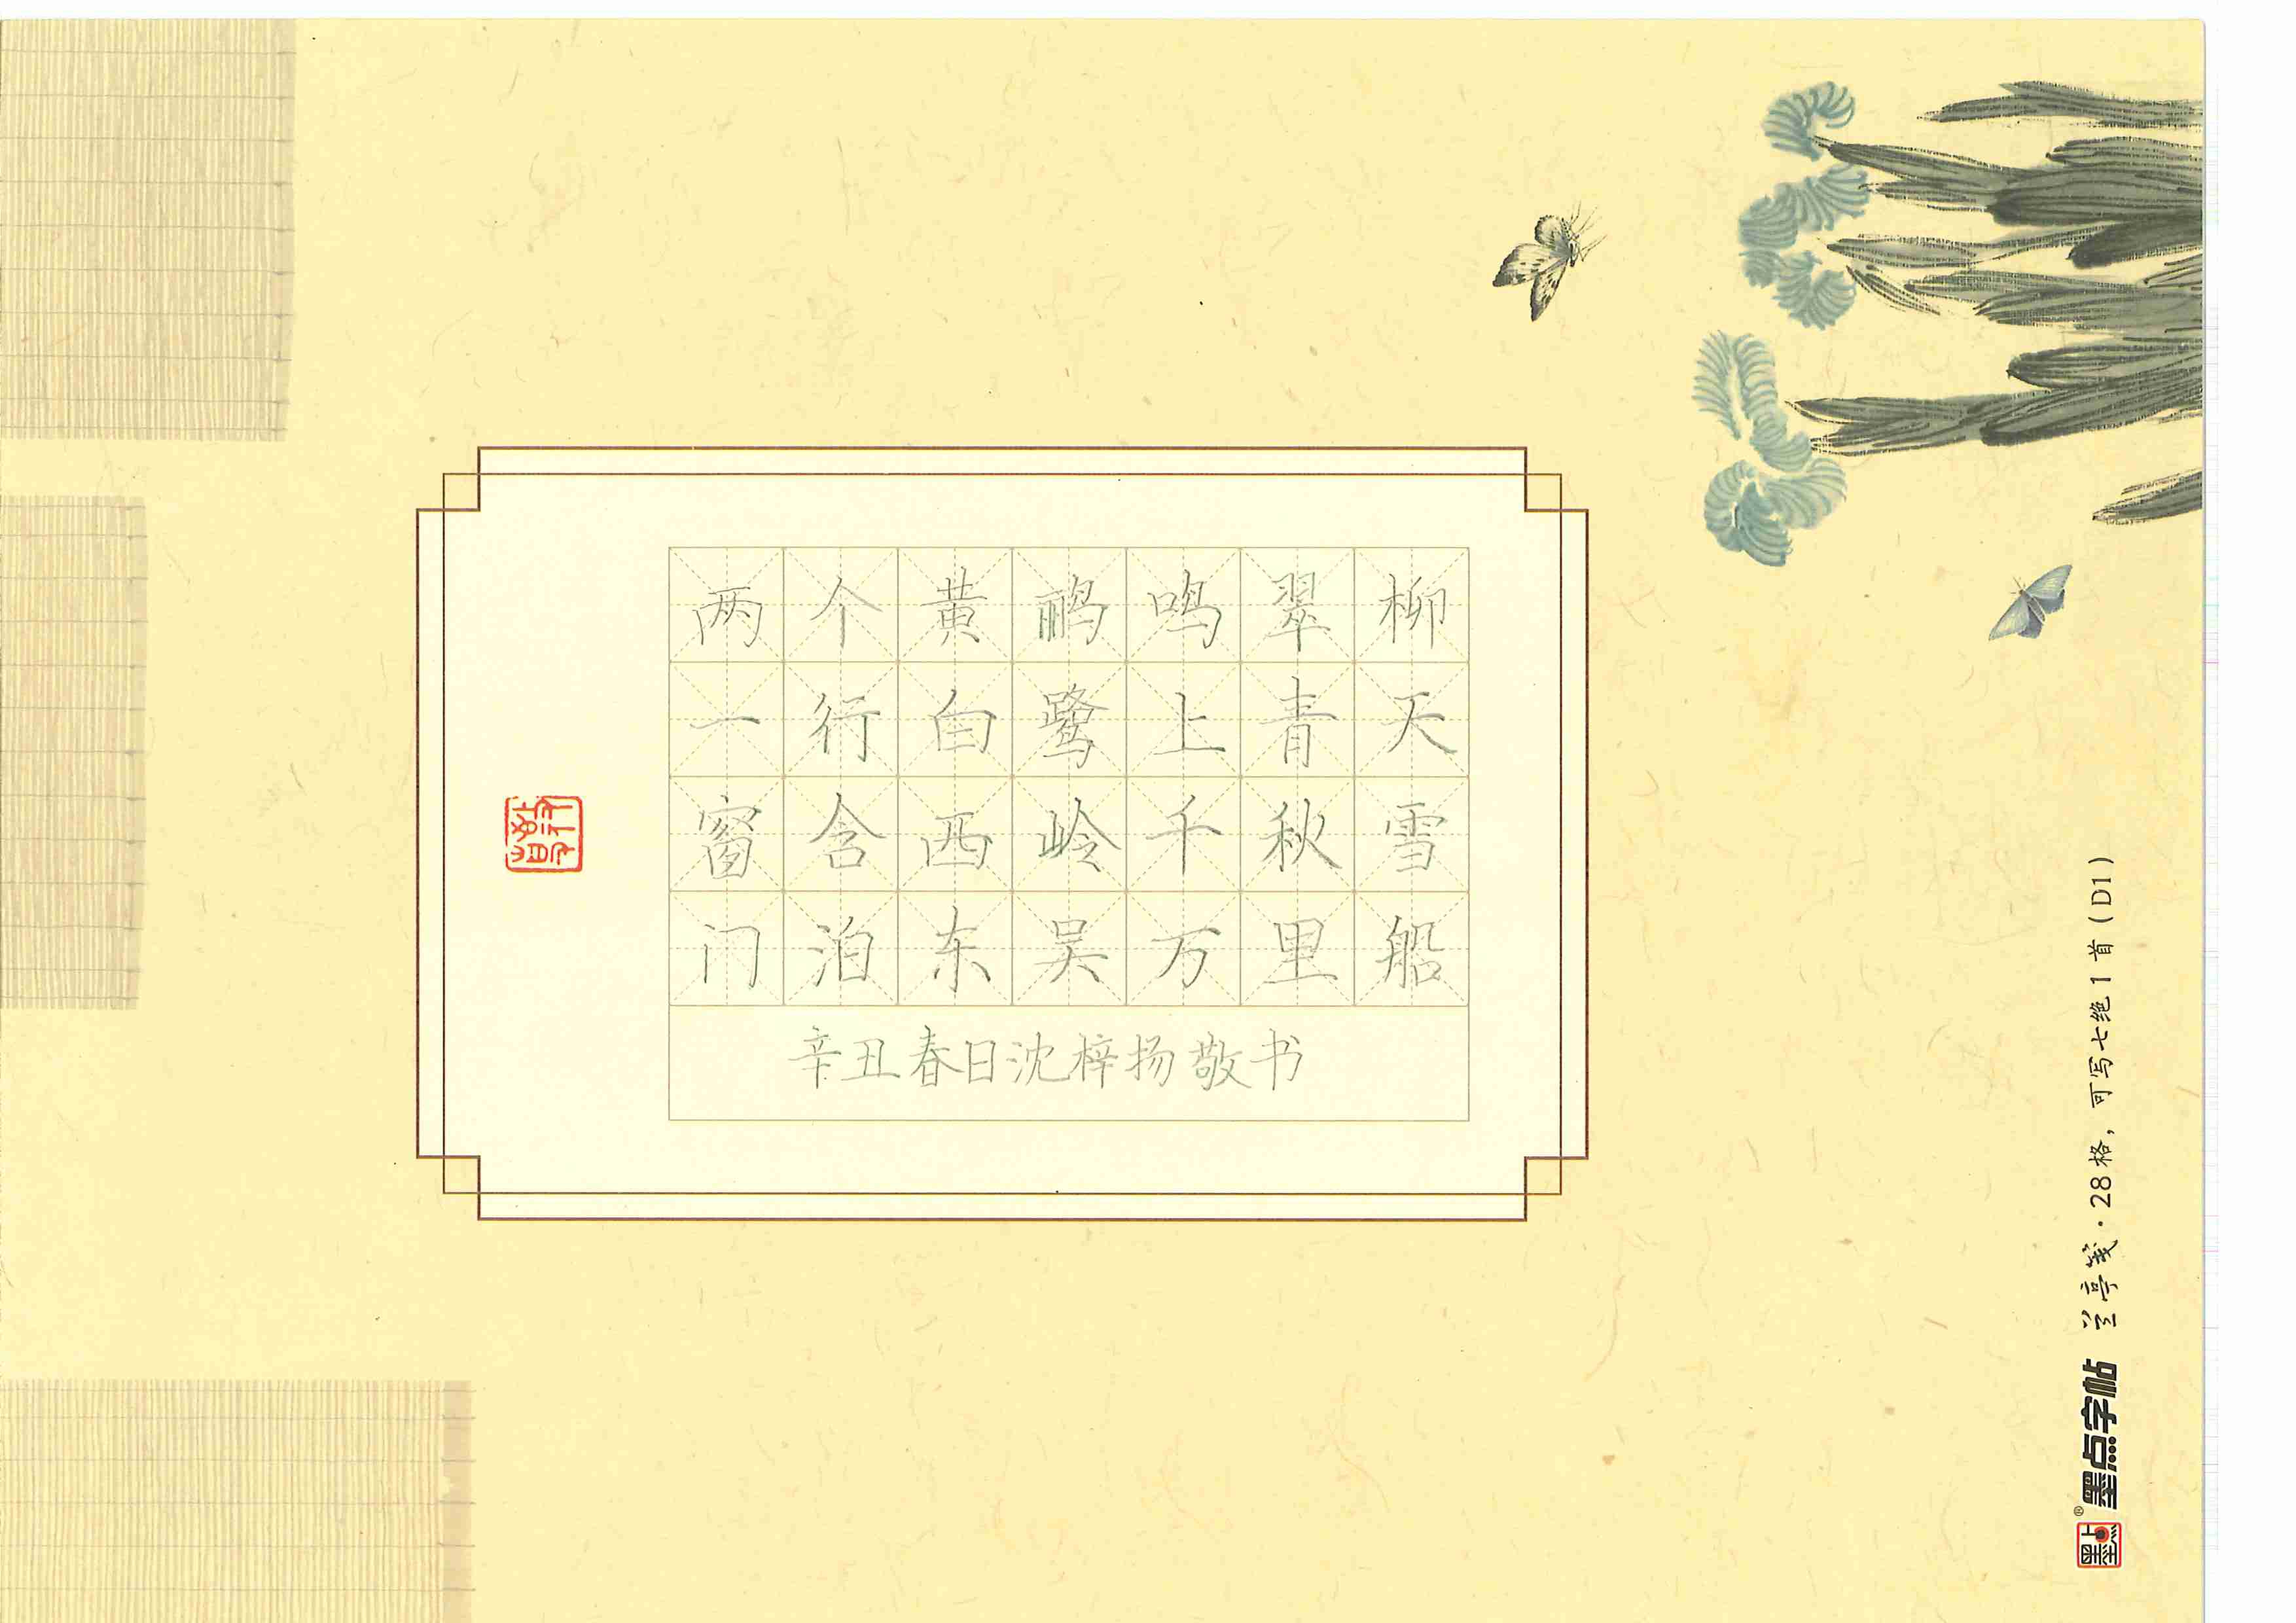 两个黄鹂鸣翠柳
一行白鹭上青天
窗含西岭千秋雪
门泊东吴万里船
辛丑春日沈梓扬敬书
墨点字帖 兰亭笺·28格，可写七绝1首（D1）